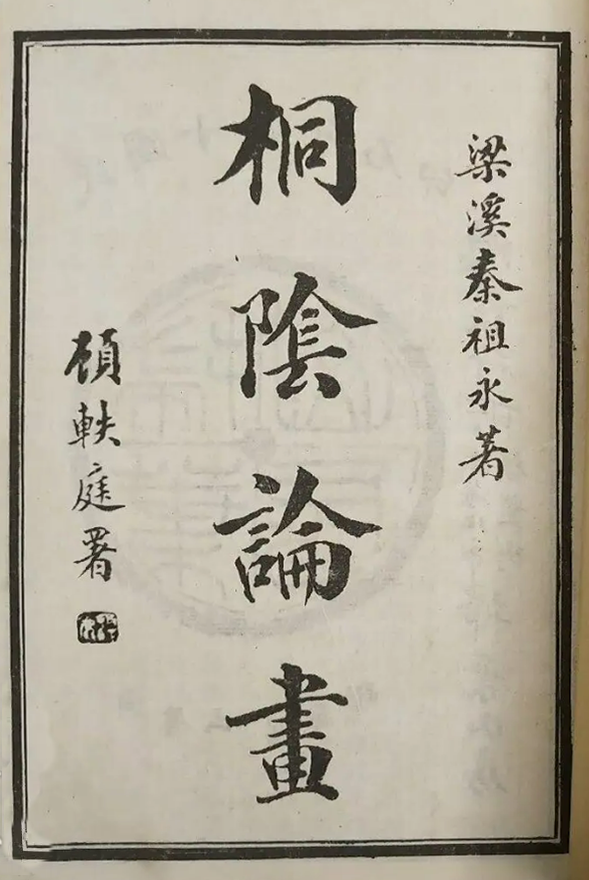 梁溪秦祖永著
桐陰論畫
顧軼庭署